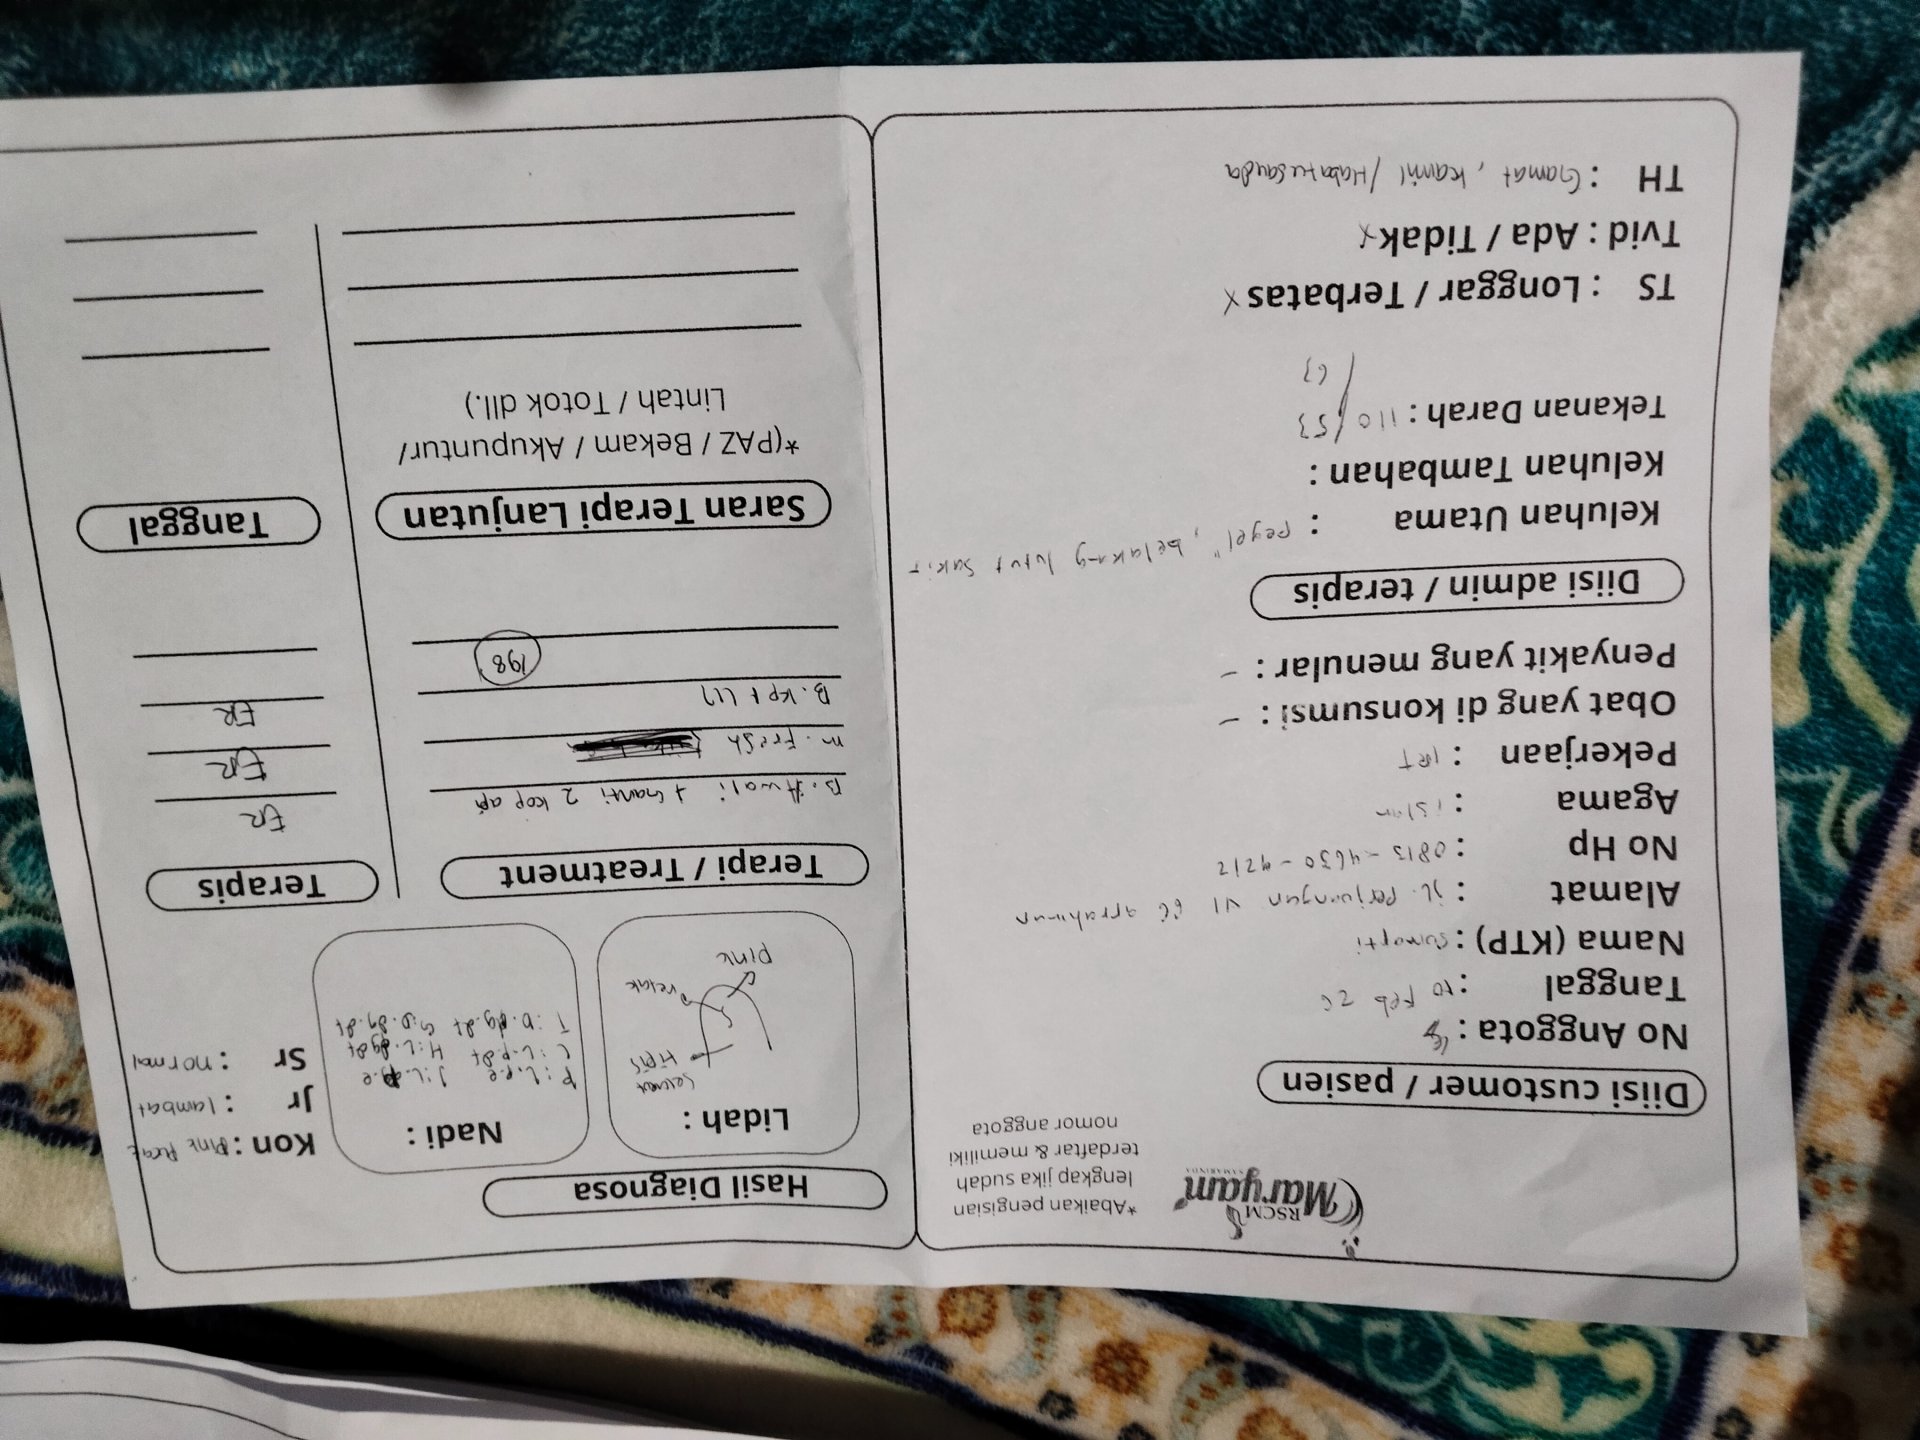 RSCM
Maryam
SAMARINDA
*Abaikan pengisian
lengkap jika sudah
terdaftar & memiliki
nomor anggota
Diisi customer / pasien
No Anggota :
Tanggal : 10 Feb 26
Nama (KTP) : sumarti
Alamat : jl. perjuangan VI
No Hp : 0813 - 4630 - 9212
Agama : islam
Pekerjaan : IRT
Obat yang di konsumsi : -
Penyakit yang menular : -
Diisi admin / terapis
Keluhan Utama : pegel", belakang lutut sakit
Keluhan Tambahan :
Tekanan Darah : 110 / 53 / 63
TS : Longgar / Terbatas x
Tvid : Ada / Tidak x
TH : Gamat, kamil / Habatusauda
Hasil Diagnosa
Lidah :
HPIS
retak
pink
Nadi :
P : L.p.e J : L.
L : L.p.df H : L.dg.df
T : D.dg.df G : D.dg.df
Kon : pink
Jr : lambat
Sr : normal
Terapi / Treatment
Terapis
B. Awali + Ganti 2 kop api ER
m. Fresh ER
B. kp + U7 ER
198
Saran Terapi Lanjutan
Tanggal
*(PAZ / Bekam / Akupuntur/
Lintah / Totok dll.)